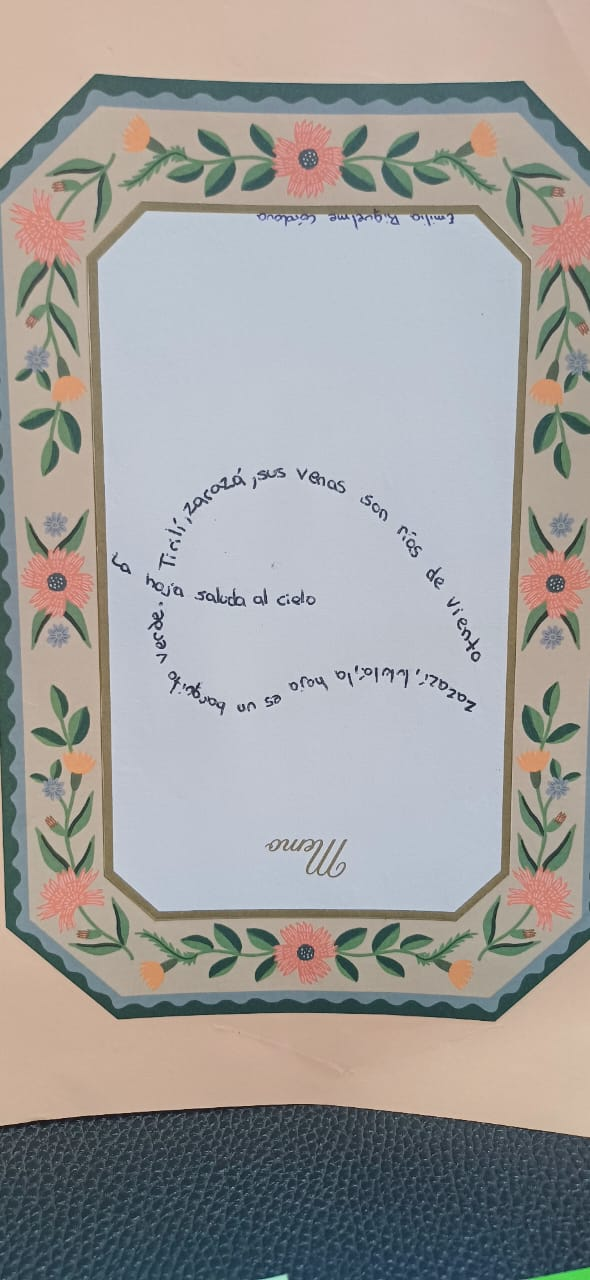 Emilia Riquelme Córdova
La hoja saluda al cielo
Tirilí, zarazá, sus venas son ríos de viento
zazazí, lululá, la hoja es un barquito verde.
Memo